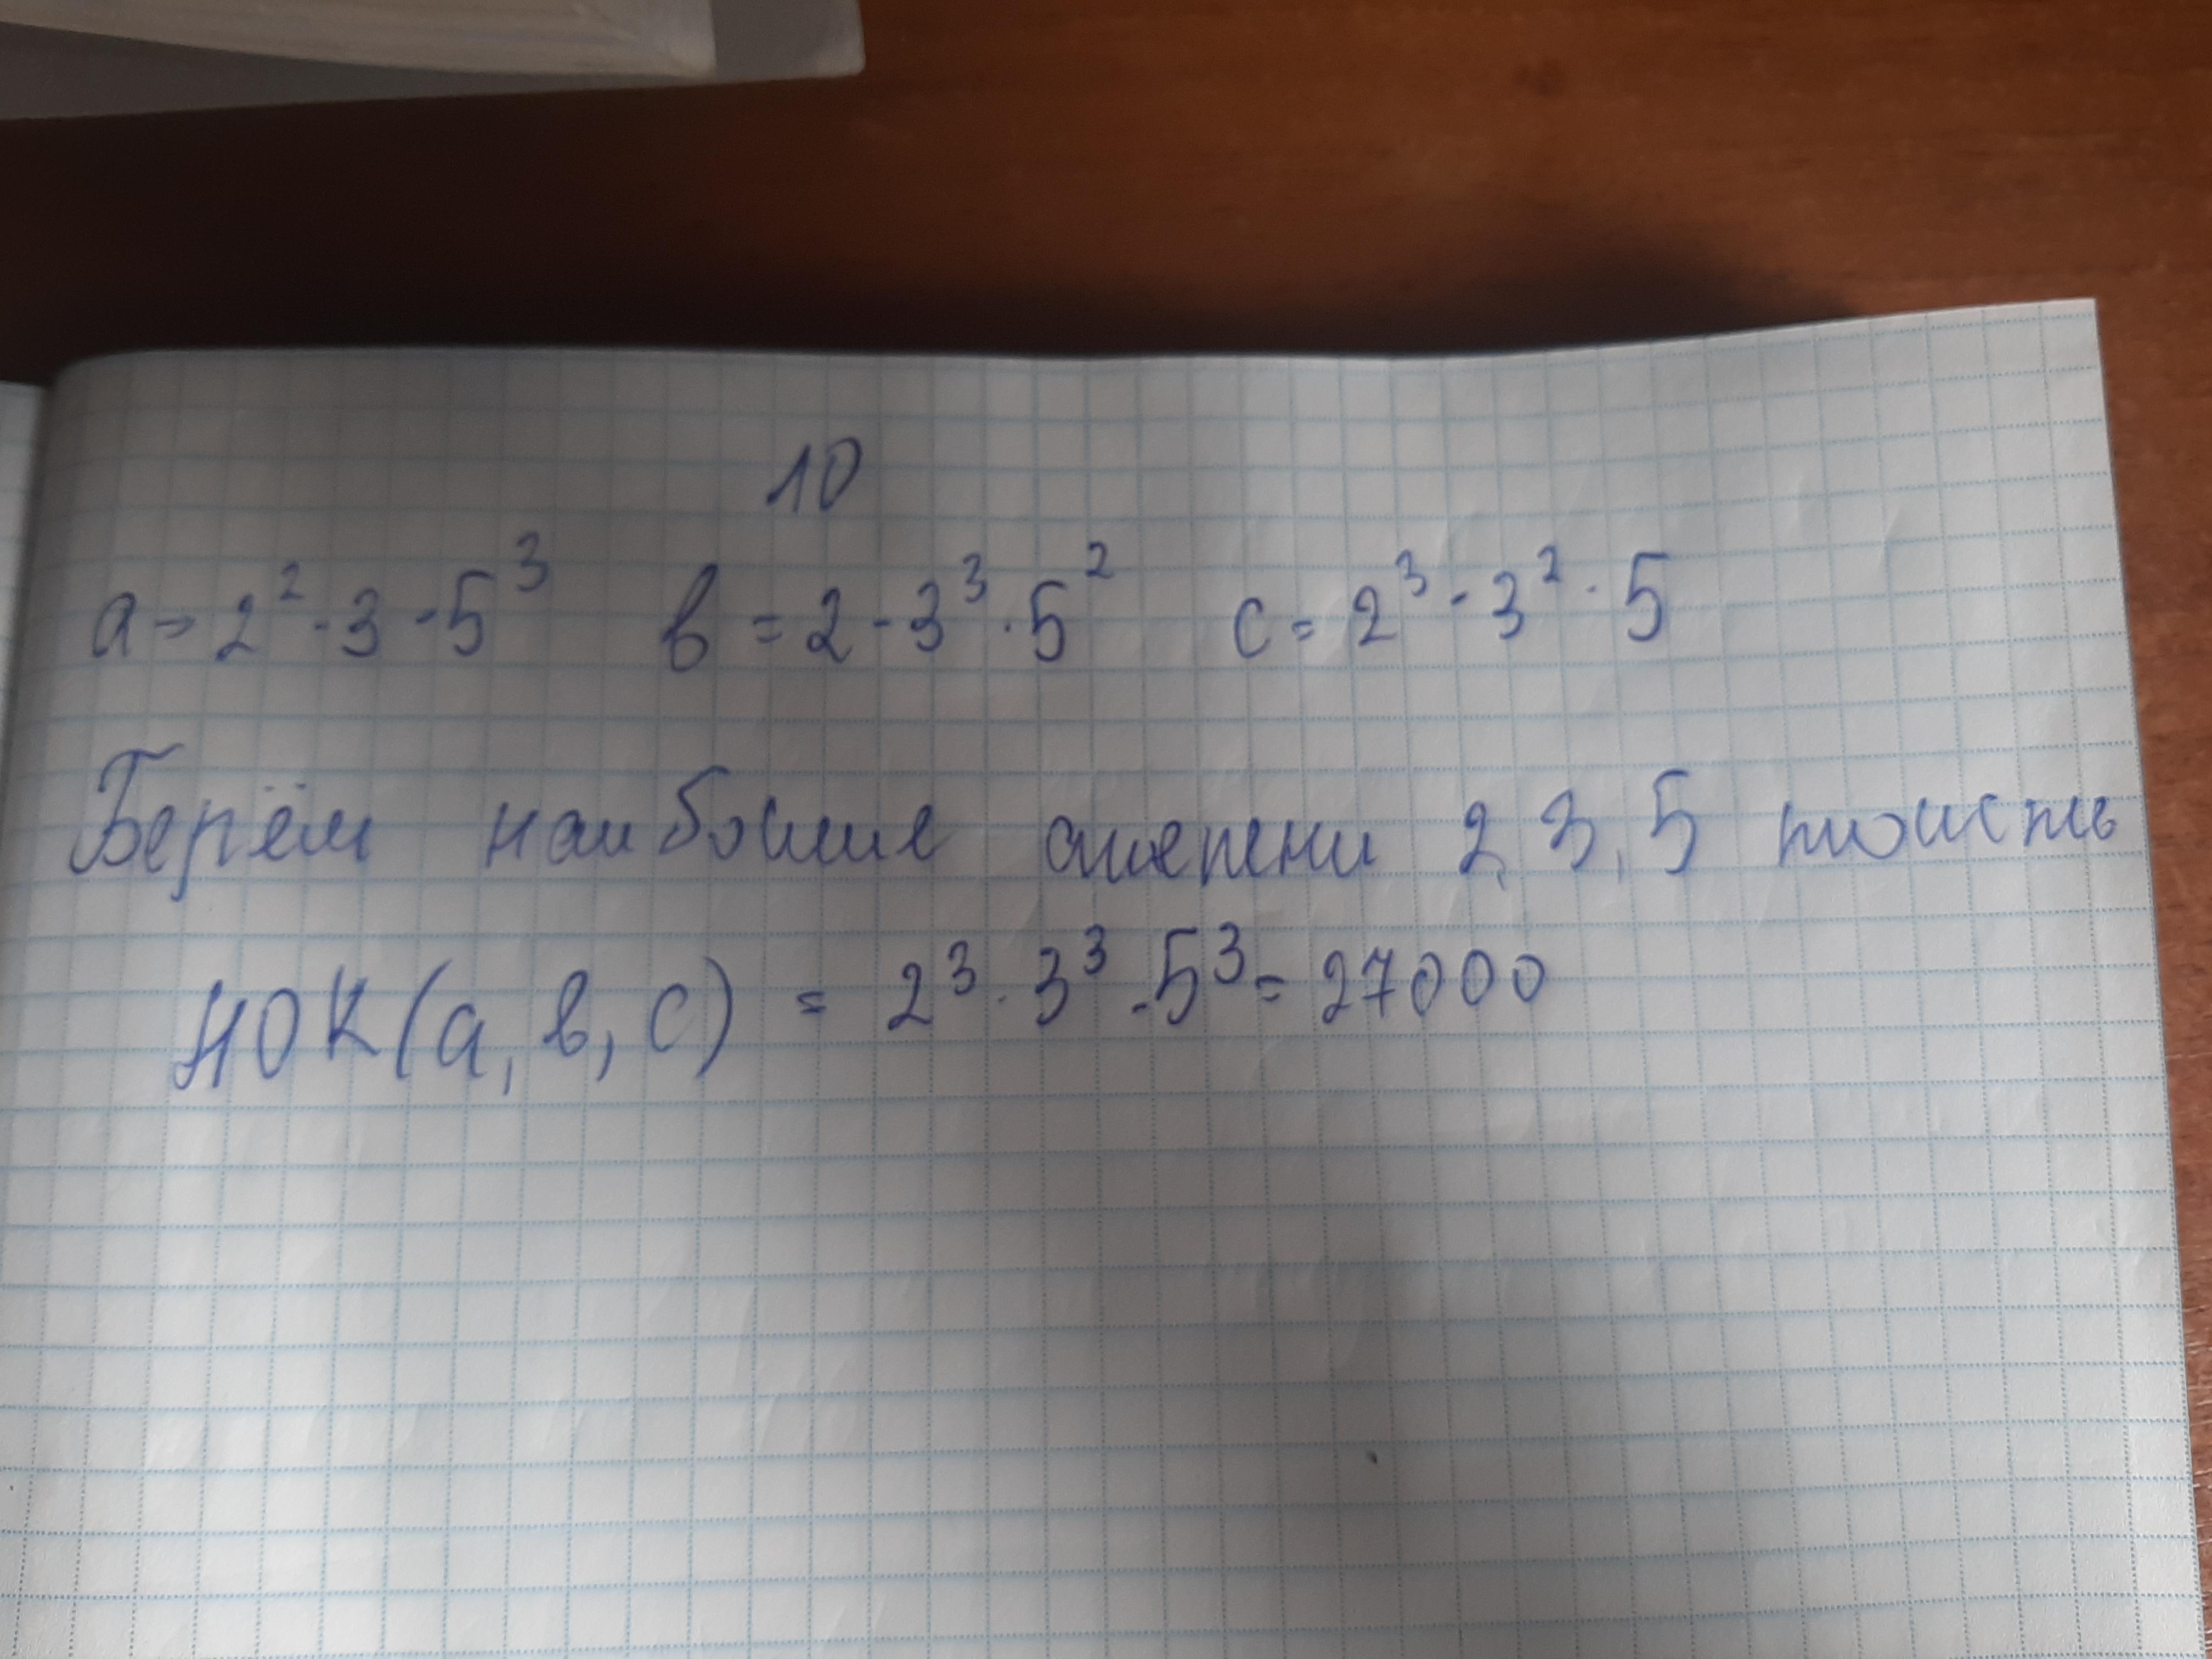 10
a = 2² · 3 · 5³ в = 2 · 3³ · 5² c = 2³ · 3² · 5
Берём наибольшие степени 2, 3, 5 тоисть
НОК(a, в, c) = 2³ · 3³ · 5³ = 27000